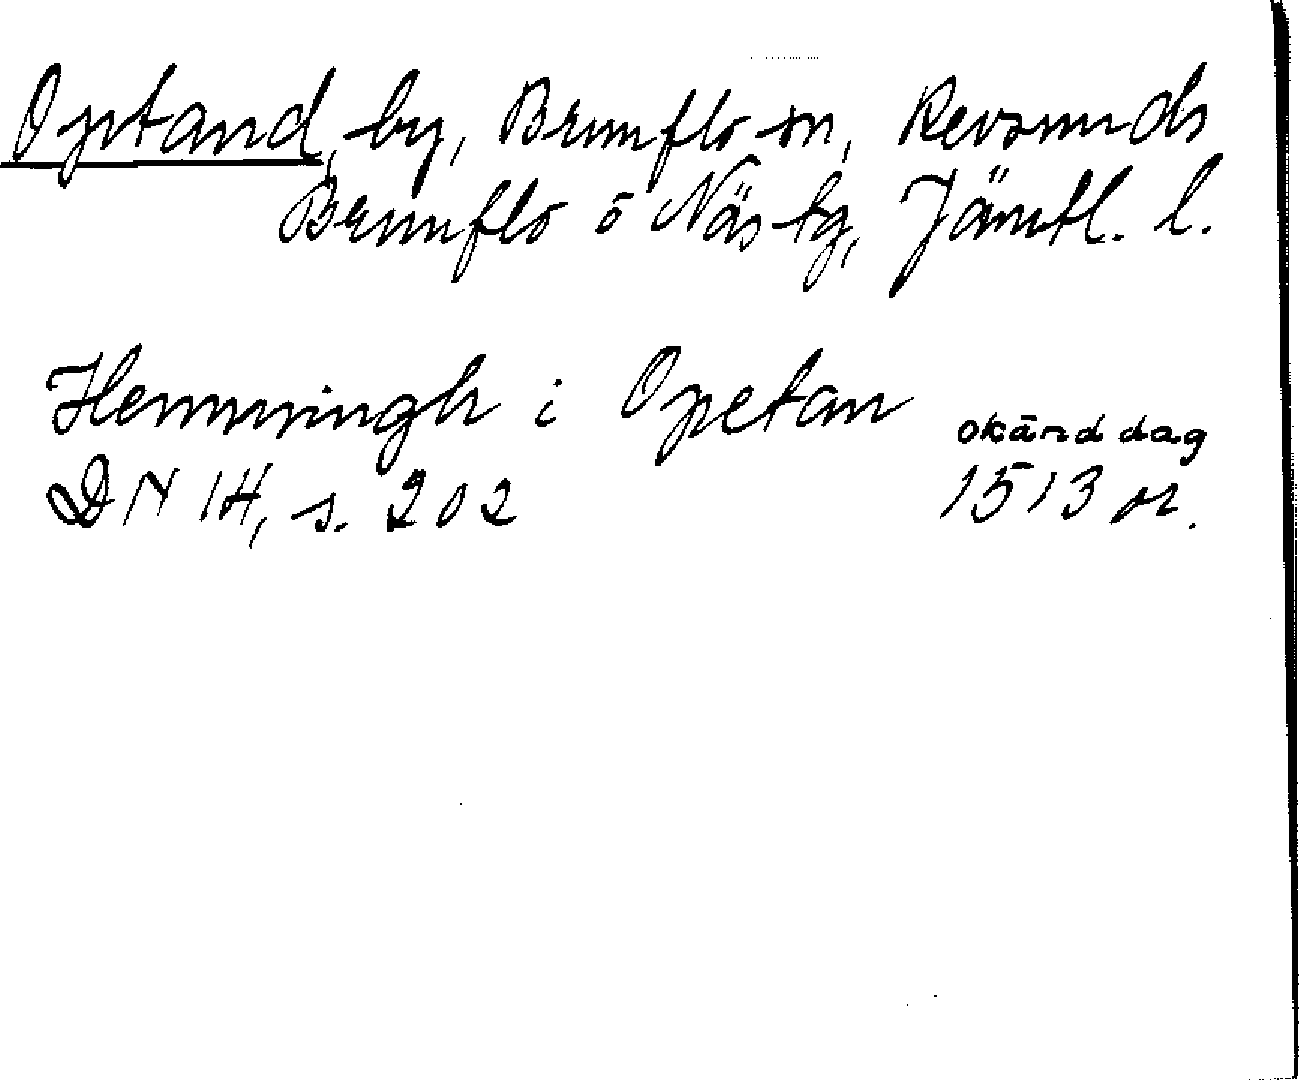 Optand, by, Brunflo sn, Revsunds
Brunflo o Näs tg, Jämtl. l.
Hemmingh i Opetan
okänd dag
DN 14, s. 202 1513 or.